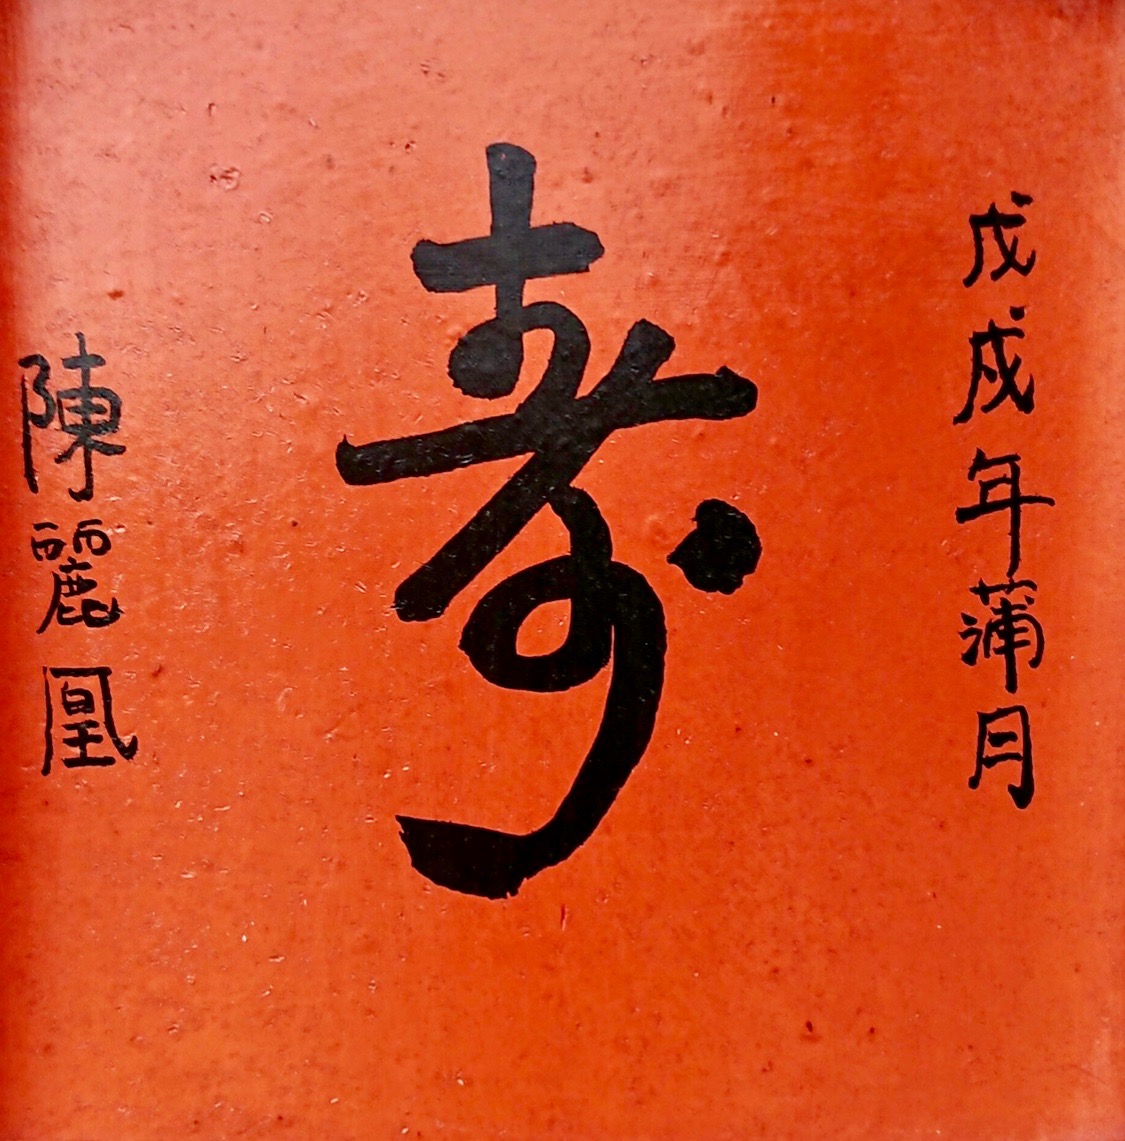 戊戌年蒲月
寿
陳麗凰